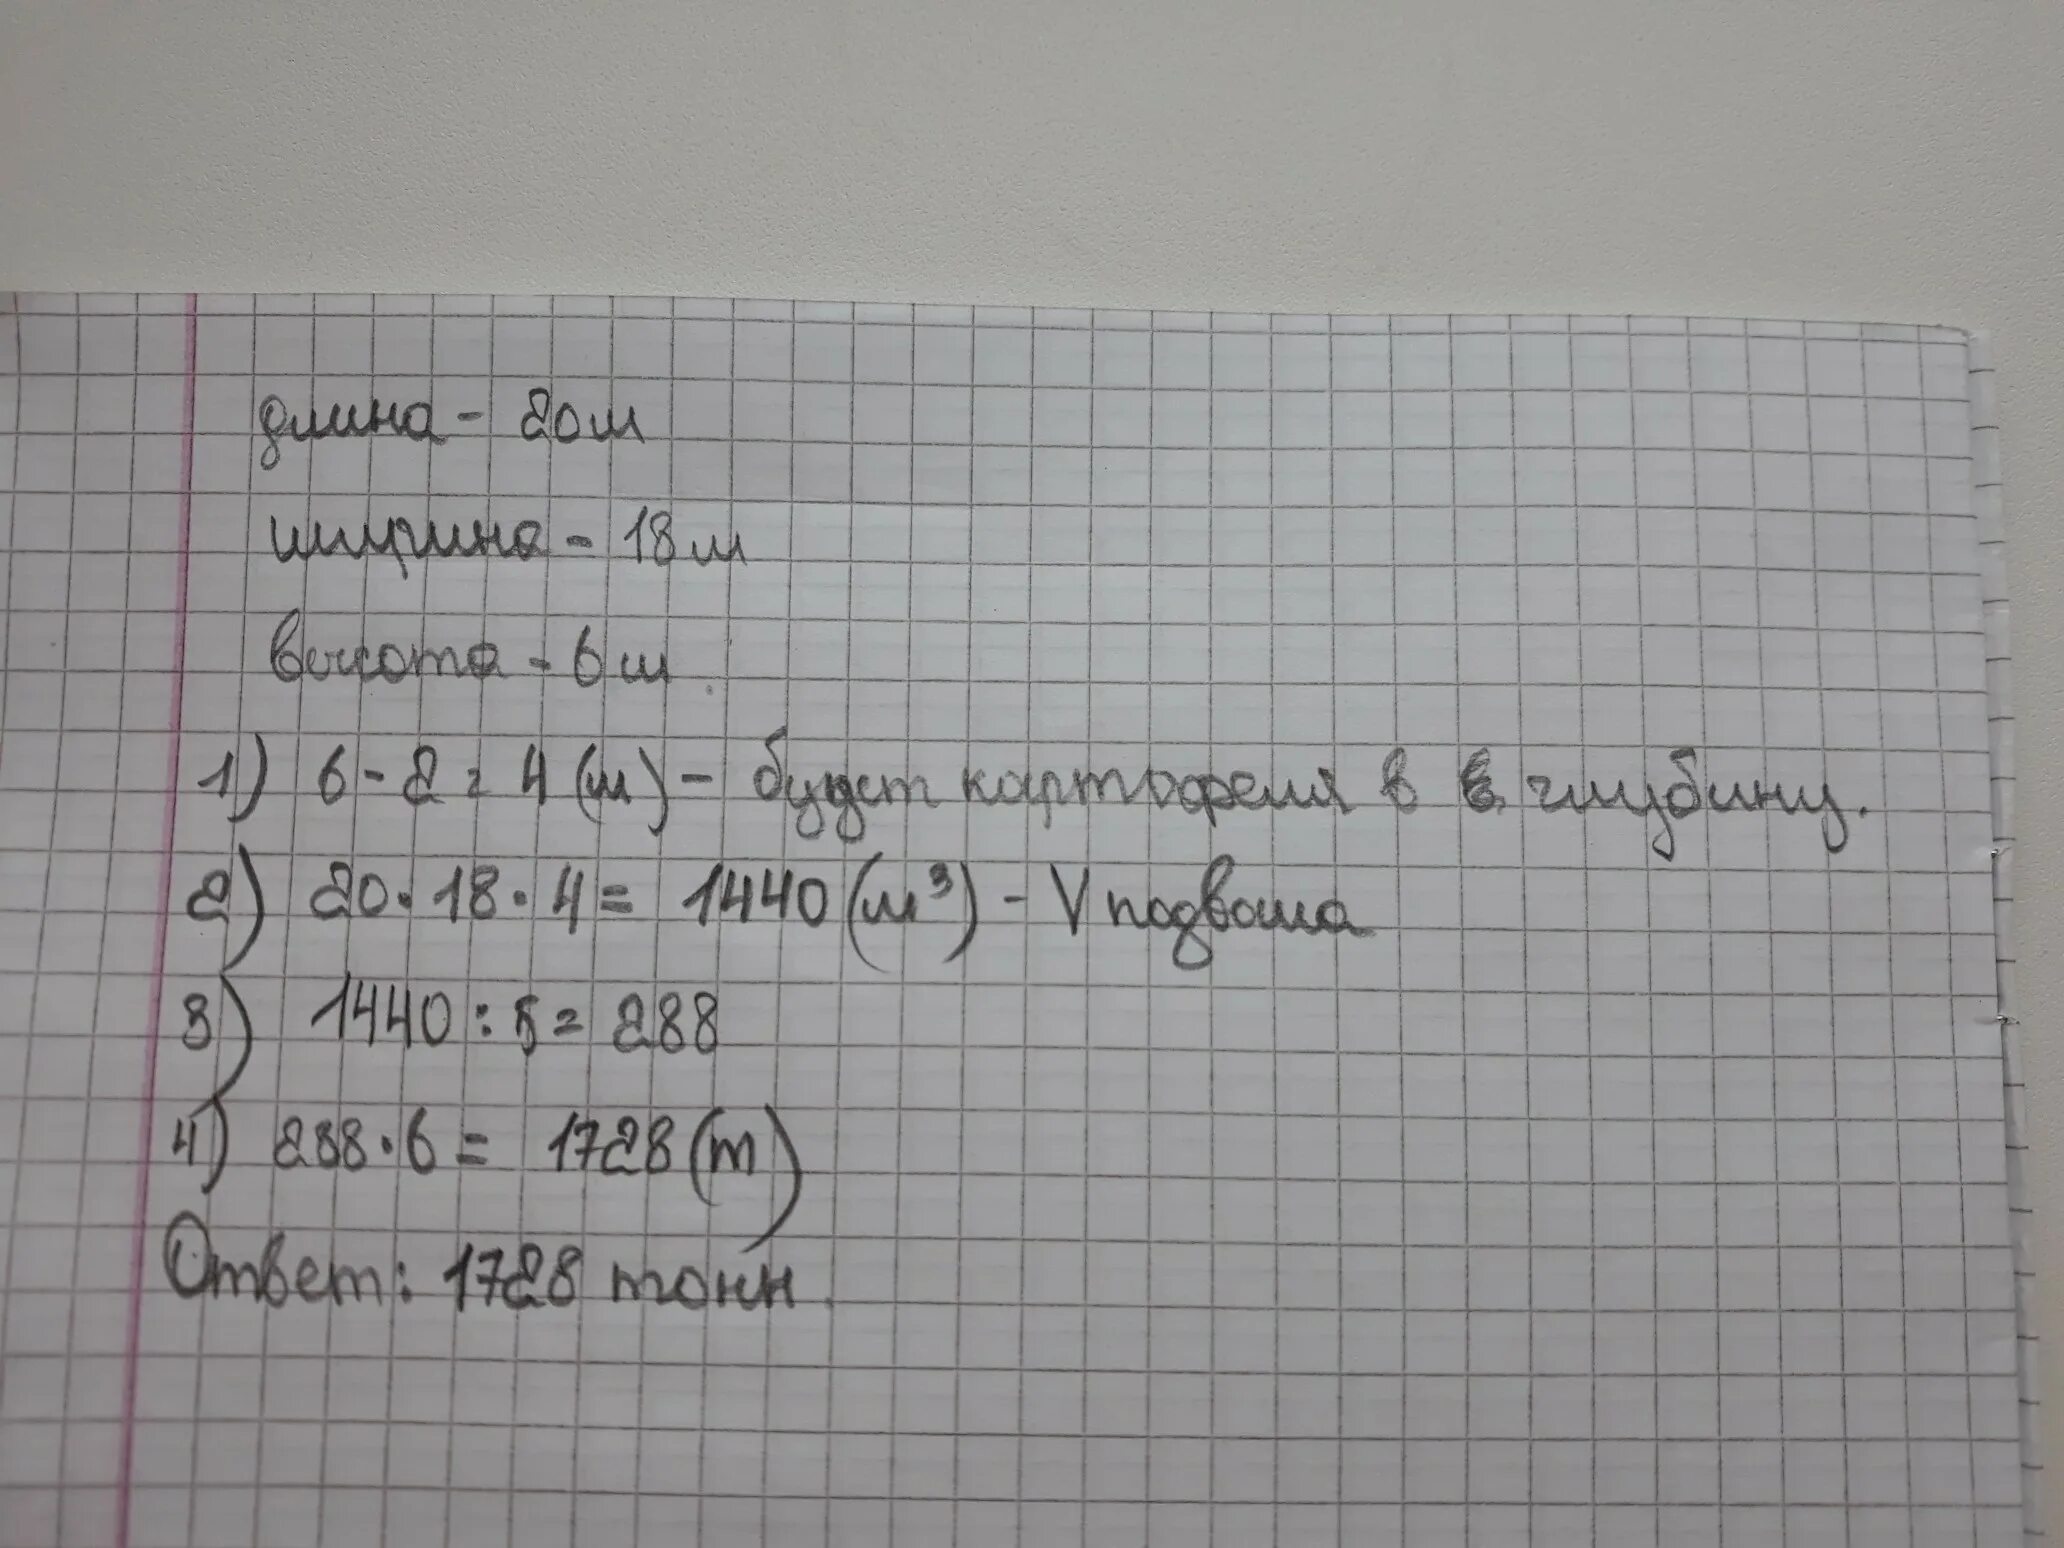 длина - 20м
ширина - 18м
высота - 6м.
1) 6 - 2 = 4 (м) - будет картофеля в глубину.
2) 20 · 18 · 4 = 1440 (м³) - V подвала
3) 1440 : 5 = 288
4) 288 · 6 = 1728 (т)
Ответ: 1728 тонн.